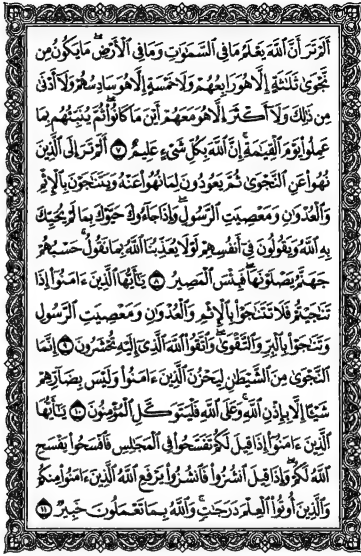 أَلَمْ تَرَ أَنَّ ٱللَّهَ يَعْلَمُ مَا فِى ٱلسَّمَٰوَٰتِ وَمَا فِى ٱلْأَرْضِ ۖ مَا يَكُونُ مِن
نَّجْوَىٰ ثَلَٰثَةٍ إِلَّا هُوَ رَابِعُهُمْ وَلَا خَمْسَةٍ إِلَّا هُوَ سَادِسُهُمْ وَلَآ أَدْنَىٰ
مِن ذَٰلِكَ وَلَآ أَكْثَرَ إِلَّا هُوَ مَعَهُمْ أَيْنَ مَا كَانُوا۟ ۖ ثُمَّ يُنَبِّئُهُم بِمَا
عَمِلُوا۟ يَوْمَ ٱلْقِيَٰمَةِ ۚ إِنَّ ٱللَّهَ بِكُلِّ شَىْءٍ عَلِيمٌ ٧ أَلَمْ تَرَ إِلَى ٱلَّذِينَ
نُهُوا۟ عَنِ ٱلنَّجْوَىٰ ثُمَّ يَعُودُونَ لِمَا نُهُوا۟ عَنْهُ وَيَتَنَٰجَوْنَ بِٱلْإِثْمِ
وَٱلْعُدْوَٰنِ وَمَعْصِيَتِ ٱلرَّسُولِ وَإِذَا جَآءُوكَ حَيَّوْكَ بِمَا لَمْ يُحَيِّكَ
بِهِ ٱللَّهُ وَيَقُولُونَ فِىٓ أَنفُسِهِمْ لَوْلَا يُعَذِّبُنَا ٱللَّهُ بِمَا نَقُولُ ۚ حَسْبُهُمْ
جَهَنَّمُ يَصْلَوْنَهَا ۖ فَبِئْسَ ٱلْمَصِيرُ ٨ يَٰٓأَيُّهَا ٱلَّذِينَ ءَامَنُوٓا۟ إِذَا
تَنَٰجَيْتُمْ فَلَا تَتَنَٰجَوْا۟ بِٱلْإِثْمِ وَٱلْعُدْوَٰنِ وَمَعْصِيَتِ ٱلرَّسُولِ
وَتَنَٰجَوْا۟ بِٱلْبِرِّ وَٱلتَّقْوَىٰ ۖ وَٱتَّقُوا۟ ٱللَّهَ ٱلَّذِىٓ إِلَيْهِ تُحْشَرُونَ ٩ إِنَّمَا
ٱلنَّجْوَىٰ مِنَ ٱلشَّيْطَٰنِ لِيَحْزُنَ ٱلَّذِينَ ءَامَنُوا۟ وَلَيْسَ بِضَآرِّهِمْ
شَيْـًٔا إِلَّا بِإِذْنِ ٱللَّهِ ۚ وَعَلَى ٱللَّهِ فَلْيَتَوَكَّلِ ٱلْمُؤْمِنُونَ ١٠ يَٰٓأَيُّهَا
ٱلَّذِينَ ءَامَنُوٓا۟ إِذَا قِيلَ لَكُمْ تَفَسَّحُوا۟ فِى ٱلْمَجَٰلِسِ فَٱفْسَحُوا۟ يَفْسَحِ
ٱللَّهُ لَكُمْ ۖ وَإِذَا قِيلَ ٱنشُزُوا۟ فَٱنشُزُوا۟ يَرْفَعِ ٱللَّهُ ٱلَّذِينَ ءَامَنُوا۟ مِنكُمْ
وَٱلَّذِينَ أُوتُوا۟ ٱلْعِلْمَ دَرَجَٰتٍ ۚ وَٱللَّهُ بِمَا تَعْمَلُونَ خَبِيرٌ ١١